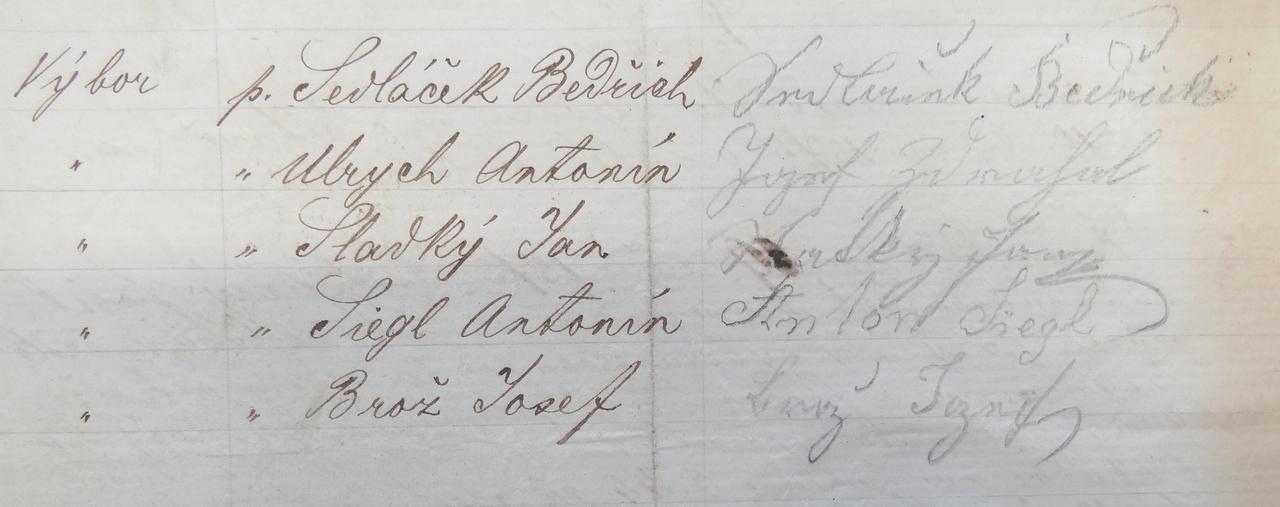 Výbor p. Sedláček Bedřich Sedlaček Bedřich
" " Ulrych Antonín Jozef Zdrahal
" " Sladký Jan Sladký Jan
" " Siegl Antonín Anton Siegl
" " Brož Josef Brož Jozef